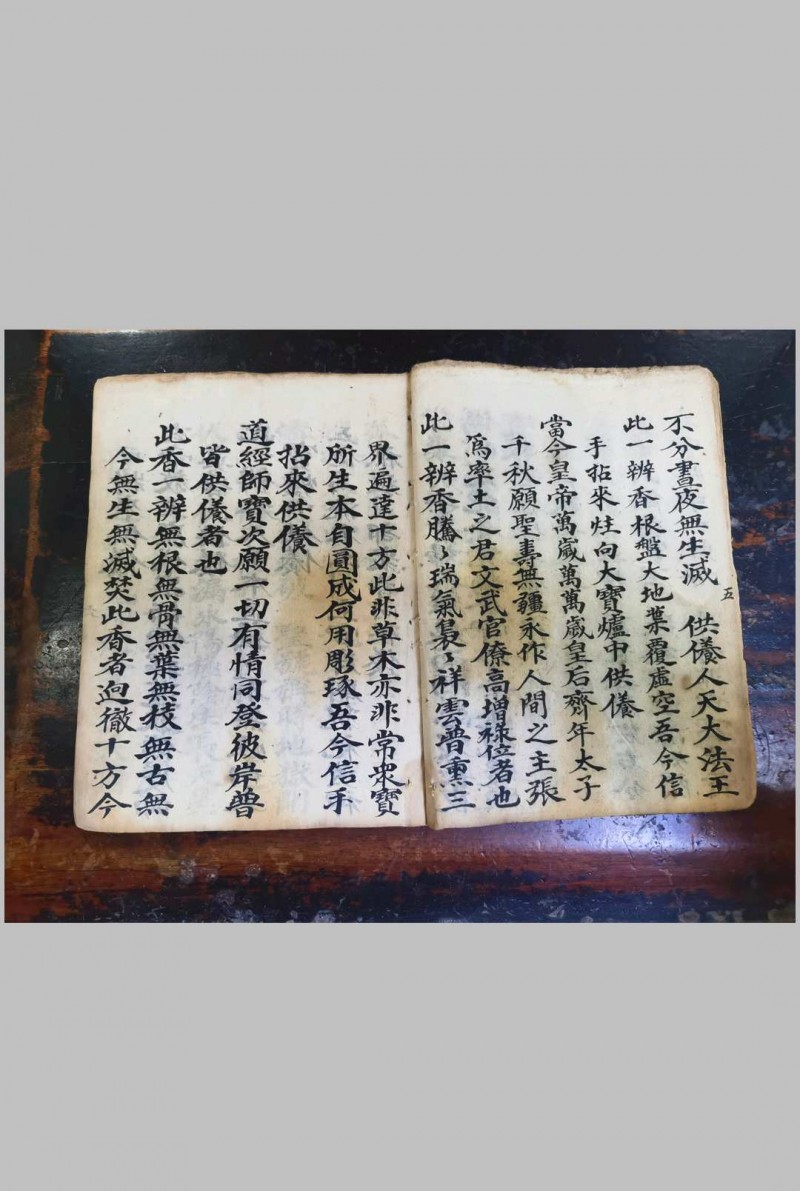 不分晝夜無生滅 供養人天大法王
五
此一辨香根盤大地葉覆虛空吾今信
手拈來炷向大寶爐中供養
當今皇帝萬歲萬萬歲皇后齊年太子
千秋願聖壽無疆永作人間之主張
爲率土之君文武官僚高增祿位者也
此一辨香騰〻瑞氣裊〻祥雲普熏三
界遍達十方此非草木亦非常眾寶
所生本自圓成何用彫琢吾今信手
拈來供養
道經師寶次願一切有情同登彼岸普
皆供養者也
此香一辨無根無骨無葉無枝無古無
今無生無滅焚此香者迥徹十方今